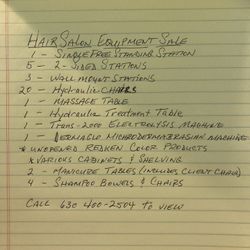 HAIR SALON EQUIPMENT SALE
1 - SINGLE FREE STANDING STATION
5 - 2-SIDED STATIONS
3 - WALL MOUNT STATIONS
20 - Hydraulic CHAIRS
1 - MASSAGE TABLE
1 - Hydraulic Treatment Table
1 - TRANS-2000 ELECTROLYSIS MACHINE
1 - DERMAGIC MICRODERMABRASIAN MACHINE
* UNOPENED REDKEN COLOR PRODUCTS
* VARIOUS CABINETS & SHELVING
2 - MANICURE TABLES (INCLUDES CLIENT CHAIR)
4 - SHAMPOO BOWLS & CHAIRS
CALL 630-400-2504 TO VIEW